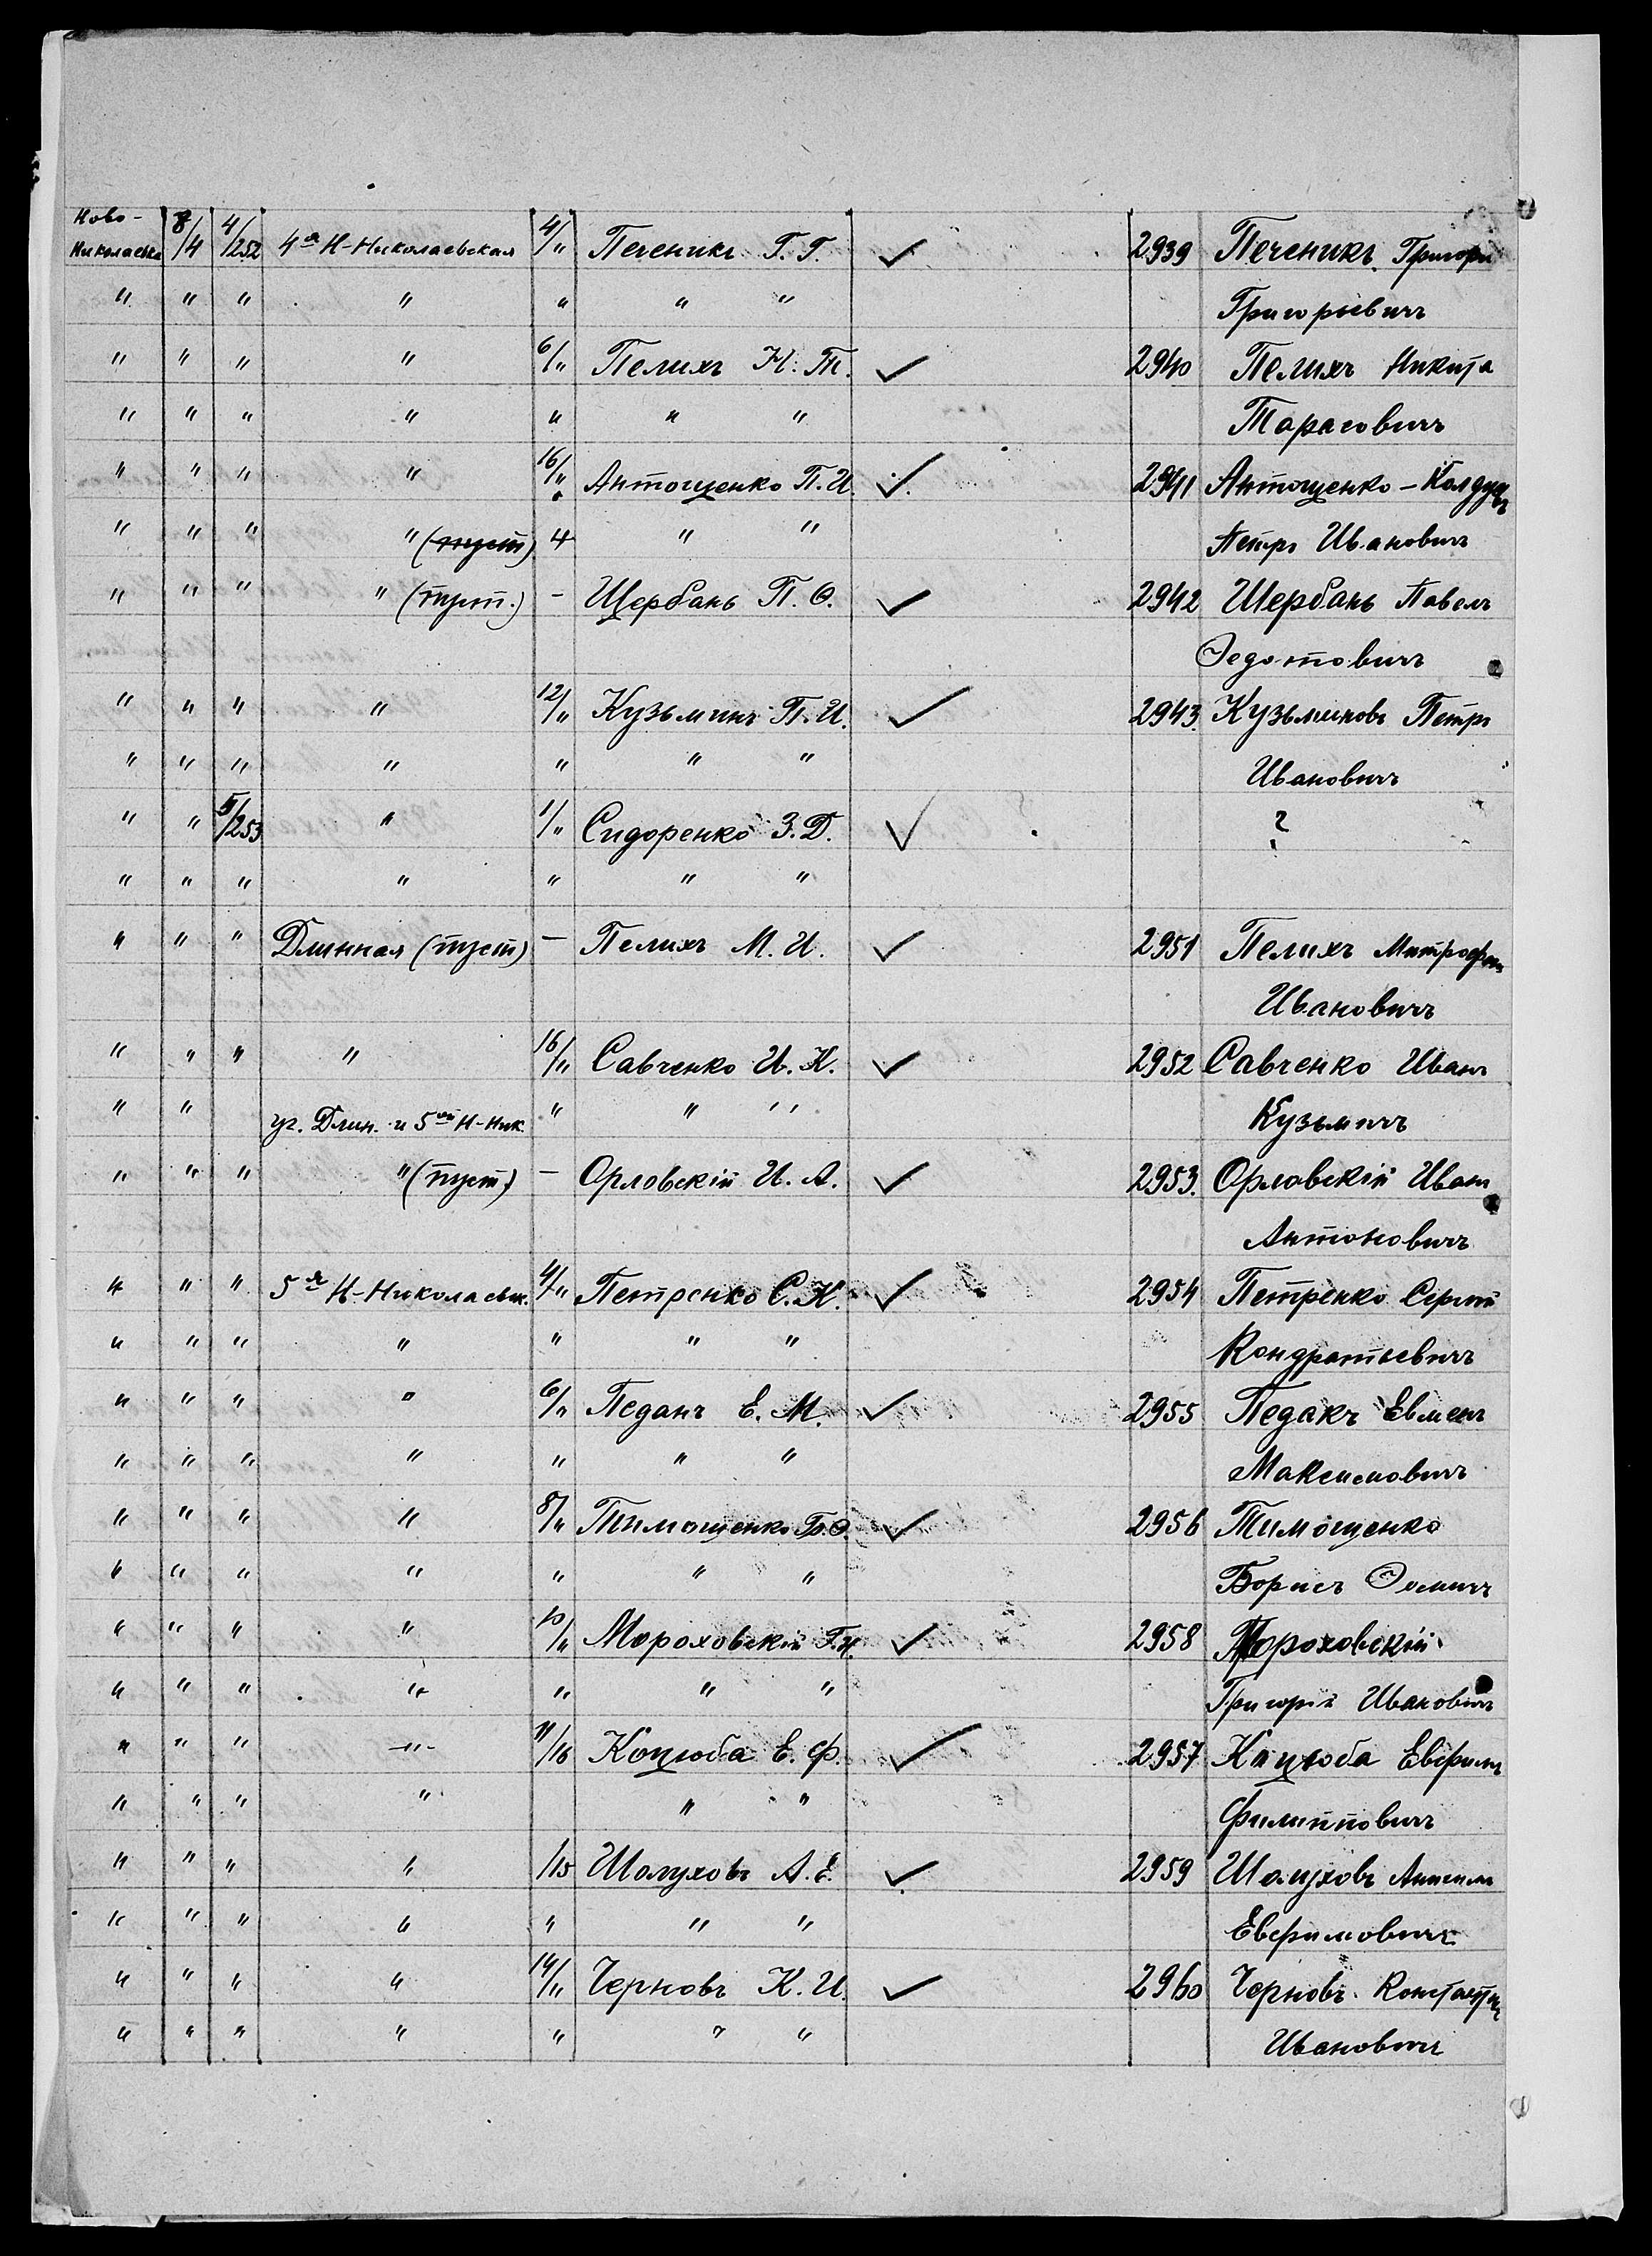 Ново-
Николаевка 8/4 4/252 4я Н-Николаевская 4/" Печеникъ Г. Г. ✓ 2939 Печеникъ Григори
" " " " " " " Григорьевичъ
" " " " 6/" Пелихъ Н. Т. ✓ 2940 Пелихъ Никита
" " " " " " " Тарасовичъ
" " " " 16/" Антощенко П. И. ✓ 2941 Антощенко-
" " " " (пуст) 4 " " Петръ Ивановичъ
" " " " (пуст.) - Щербань П. Ѳ. ✓ 2942 Щербань Павелъ
Ѳедотовичъ
" " " " 12/" Кузьминъ П. И. ✓ 2943. Кузьминовъ Петръ
" " " " " " " Ивановичъ
" " 5/253 " 1/" Сидоренко З. Д. ✓ ?
" " " " " " "
" " " Длинная (пуст) - Пелихъ М. И. ✓ 2951 Пелихъ Митрофан
Ивановичъ
" " " " 16/" Савченко И. К. ✓ 2952 Савченко Иванъ
" " уг. Длин. и 5ой Н-Ник. " " " Кузьмичъ
" " " " (пуст) - Орловскій И. А. ✓ 2953. Орловскій Иван
Антоновичъ
" " " 5я Н-Николаевск. 4/" Петренко С. К. ✓ 2954 Петренко Сергій
" " " " " " " Кондратьевичъ
" " " " 6/" Педанъ Е. М. ✓ 2955 Педакъ Евменъ
" " " " " " " Максимовичъ
" " " " 8/" Тимощенко Б. Ѳ. ✓ 2956 Тимощенко
" " " " " " " Борисъ Ѳомичъ
" " " " 10/" Мороховскій Г. И. ✓ 2958 Мороховскій
" " " " " " " Григорій Ивановичъ
" " " -"- 11/16 Коцюба Е. Ф. ✓ 2957 Коцюба Евфимъ
" " " " " " Филипповичъ
" " " " /15 Шолуховъ А. Е. ✓ 2959 Шолуховъ
" " " " " " " Евфимовичъ
" " " " 14/" Черновъ К. И. ✓ 2960 Черновъ Константин
" " " " " " " Ивановичъ